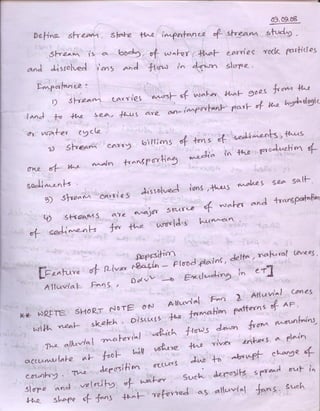 03.09.08
Define stream. State the importance of stream study.
Stream is a body of water that carries rock particles
and dissolved ions and flow in down slope.
Importance :
1) Stream carries most of water that goes from the
land to the sea, thus are an important part of the hydrologic
or water cycle
2) Stream carry billions of tons of sediments, thus
one of the main transporting media in the production of
sediments.
3) Stream carries dissolved ions, thus makes sea salt
4) Streams are major source of water and transportation
of sediments for the world's human.
Deposition
[Feature of River Basin - Flood plains, delta, natural levees,
Alluvial Fans, Excluding in CT]
** WRITE SHORT NOTE ON Alluvial Fan & Alluvial Cones
with neat sketch. Discuss the formation patterns of AF.
The alluvial material which flows down from mountains,
accumulate at foot hill where the river enters a plain
country. The deposition occurs due to abrupt change of
slope and velocity of water. Such deposits spread out in
the shape of fans that referred as alluvial fans. Such